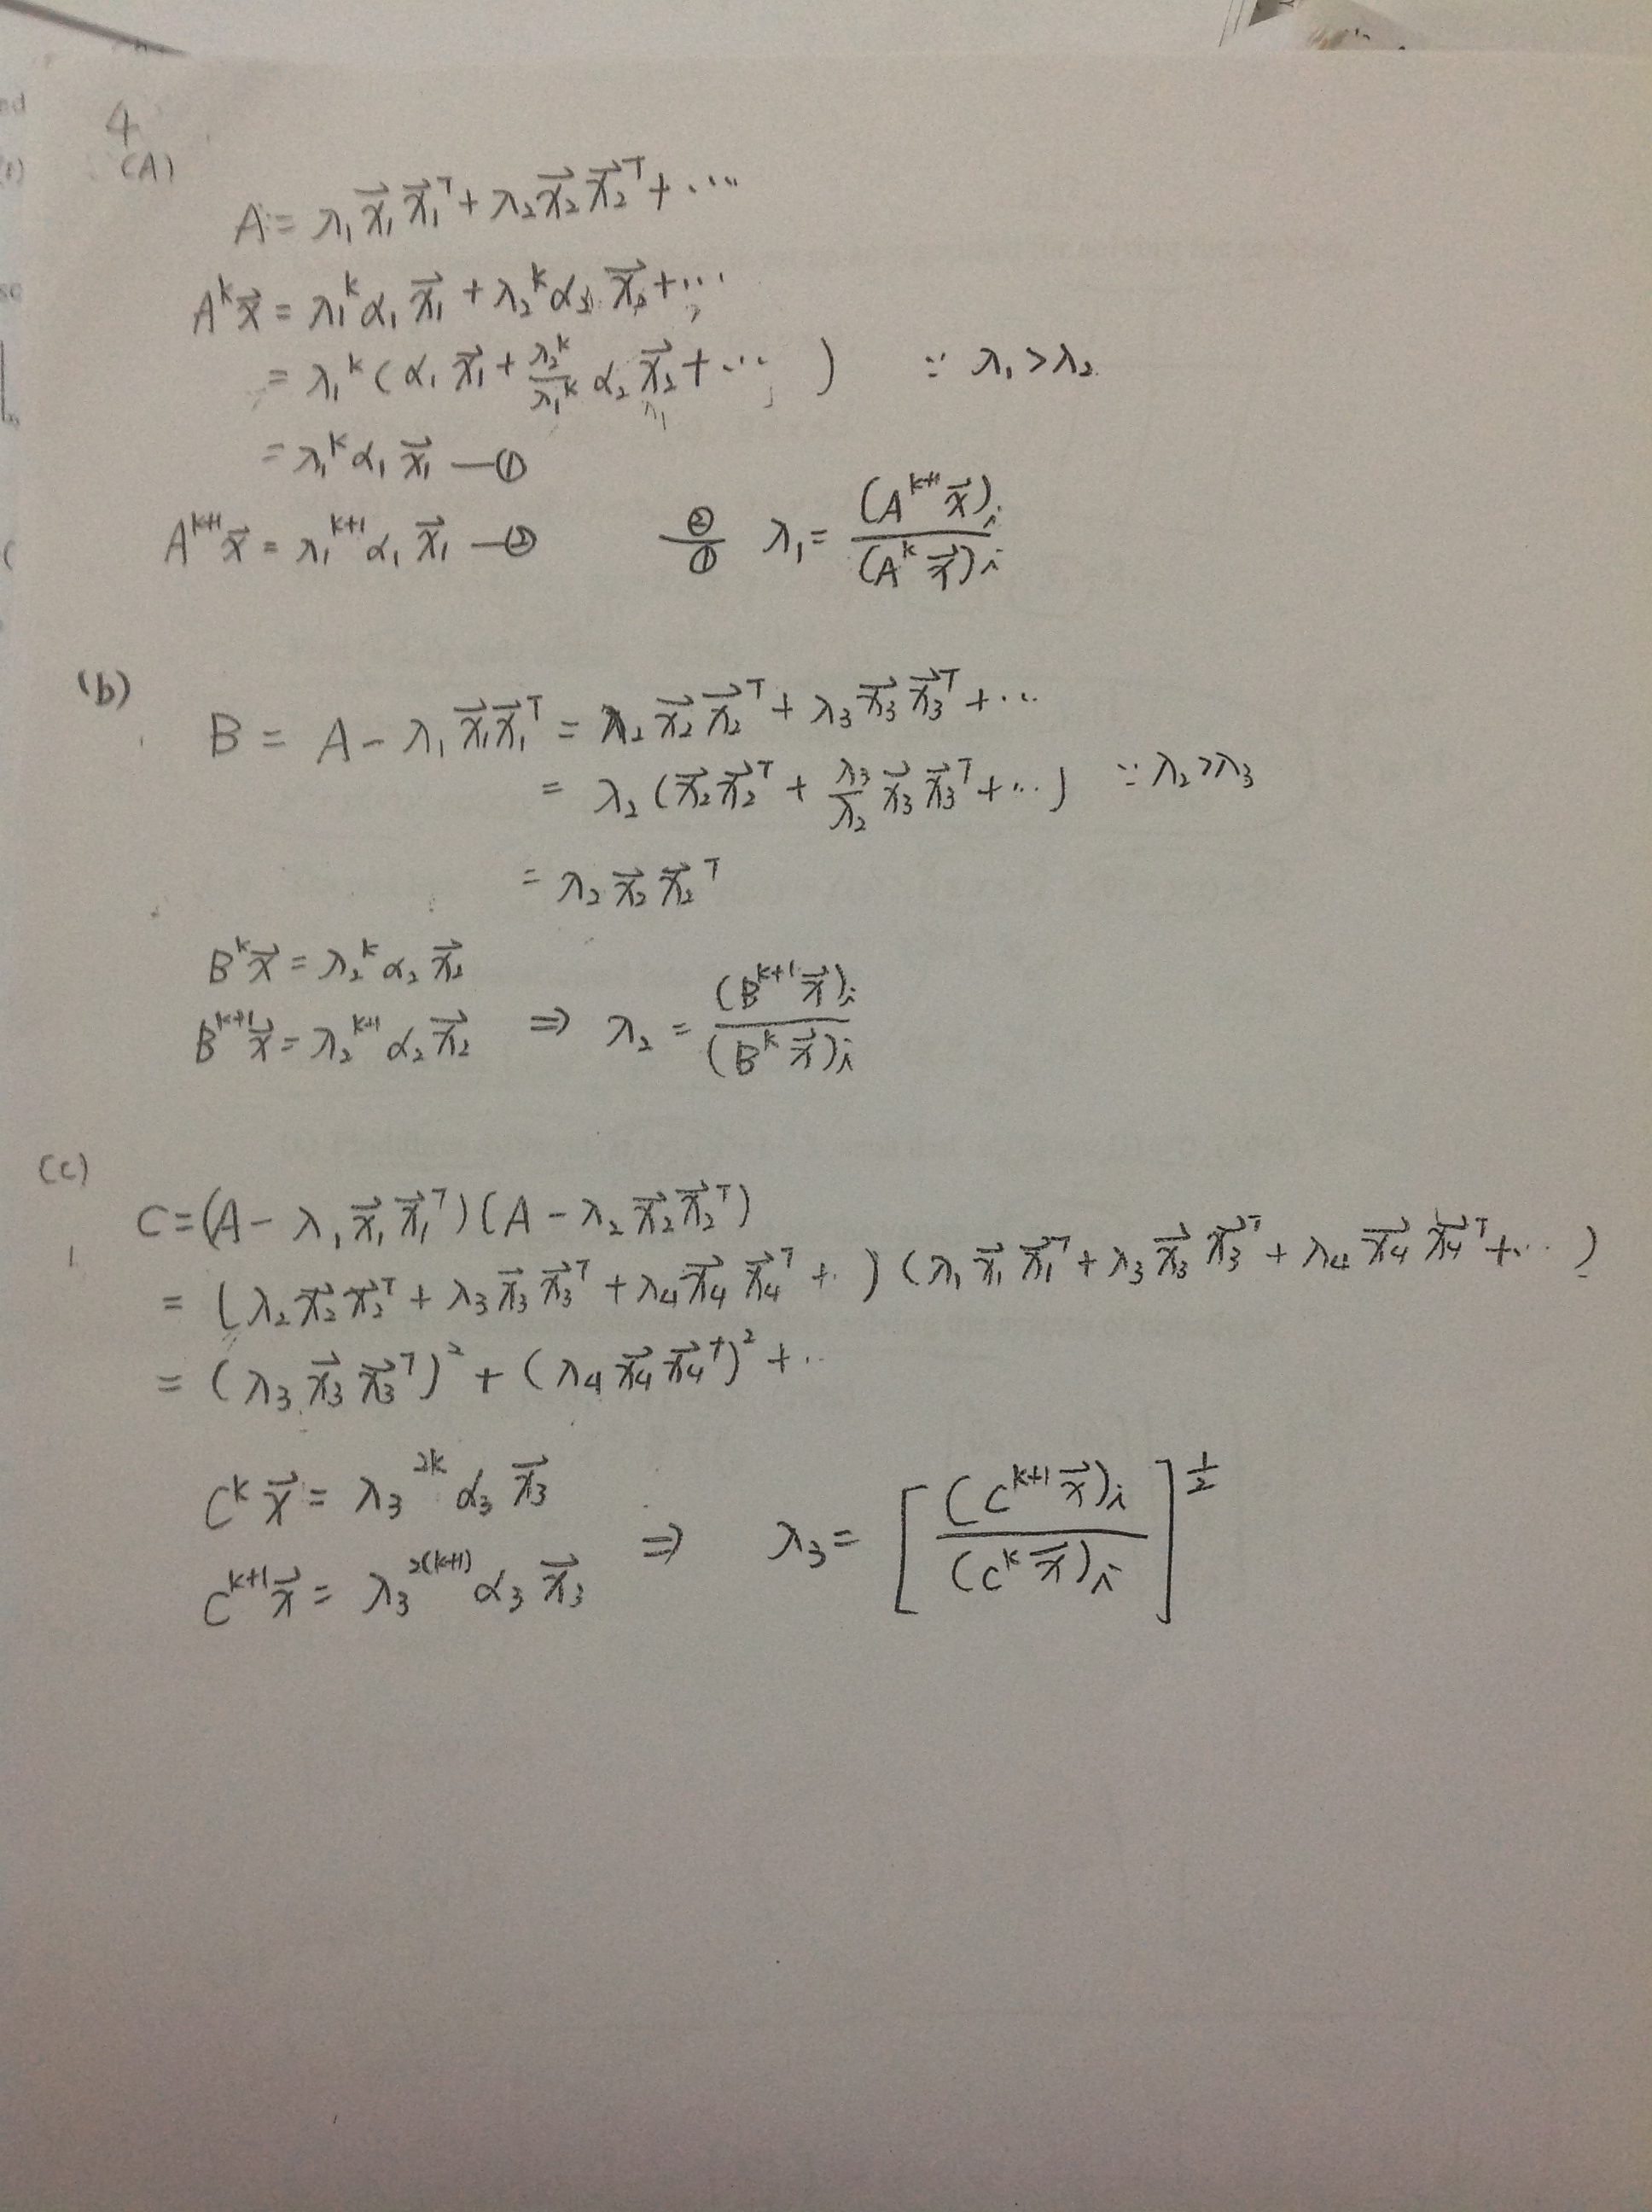 4
(A)
A = λ₁ x⃗₁ x⃗₁ᵀ + λ₂ x⃗₂ x⃗₂ᵀ + ⋯
Aᵏ x⃗ = λ₁ᵏ α₁ x⃗₁ + λ₂ᵏ α₂ x⃗₂ + ⋯
= λ₁ᵏ ( α₁ x⃗₁ + λ₂ᵏ/λ₁ᵏ α₂ x⃗₂ + ⋯ ) ∵ λ₁ > λ₂
= λ₁ᵏ α₁ x⃗₁ —①
Aᵏ⁺¹ x⃗ = λ₁ᵏ⁺¹ α₁ x⃗₁ —② ②/① λ₁ = (Aᵏ⁺¹ x⃗)ᵢ / (Aᵏ x⃗)ᵢ
(b)
B = A − λ₁ x⃗₁ x⃗₁ᵀ = λ₂ x⃗₂ x⃗₂ᵀ + λ₃ x⃗₃ x⃗₃ᵀ + ⋯
= λ₂ ( x⃗₂ x⃗₂ᵀ + λ₃/λ₂ x⃗₃ x⃗₃ᵀ + ⋯ ) ∵ λ₂ > λ₃
= λ₂ x⃗₂ x⃗₂ᵀ
Bᵏ x⃗ = λ₂ᵏ α₂ x⃗₂
Bᵏ⁺¹ x⃗ = λ₂ᵏ⁺¹ α₂ x⃗₂ ⇒ λ₂ = (Bᵏ⁺¹ x⃗)ᵢ / (Bᵏ x⃗)ᵢ
(c)
C = (A − λ₁ x⃗₁ x⃗₁ᵀ) (A − λ₂ x⃗₂ x⃗₂ᵀ)
= (λ₂ x⃗₂ x⃗₂ᵀ + λ₃ x⃗₃ x⃗₃ᵀ + λ₄ x⃗₄ x⃗₄ᵀ + ⋯) (λ₁ x⃗₁ x⃗₁ᵀ + λ₃ x⃗₃ x⃗₃ᵀ + λ₄ x⃗₄ x⃗₄ᵀ + ⋯)
= (λ₃ x⃗₃ x⃗₃ᵀ)² + (λ₄ x⃗₄ x⃗₄ᵀ)² + ⋯
Cᵏ x⃗ = λ₃²ᵏ α₃ x⃗₃
Cᵏ⁺¹ x⃗ = λ₃²⁽ᵏ⁺¹⁾ α₃ x⃗₃ ⇒ λ₃ = [ (Cᵏ⁺¹ x⃗)ᵢ / (Cᵏ x⃗)ᵢ ]^½